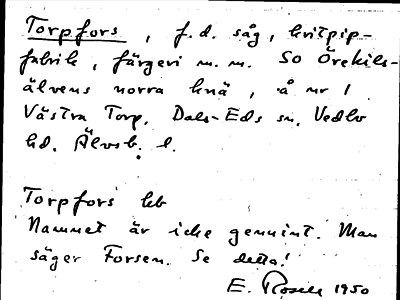 Torpfors, f.d. såg, kritpip-
fabrik, färgeri m.m. SO Örekils-
älvens norra knä, å nr 1
Västra Torp, Dals-Eds sn, Vedbo
hd. Älvsb. l.
Torpfors kb
Namnet är icke genuint. Man
säger Forsen. Se detta!
E. Rosell 1950